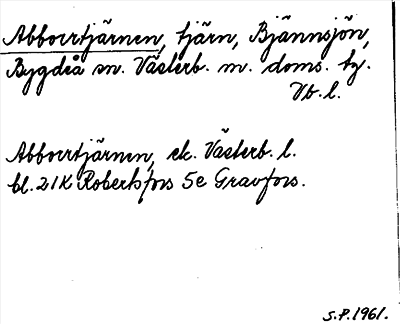 Abborrtjärnen, tjärn, Bjännsjön,
Bygdeå sn. Västerb. m. doms. tg.
Vb. l.
Abborrtjärnen, ek. Västerb. l.
bl. 21K Robertsfors 5e Gravfors.
S.P. 1961.